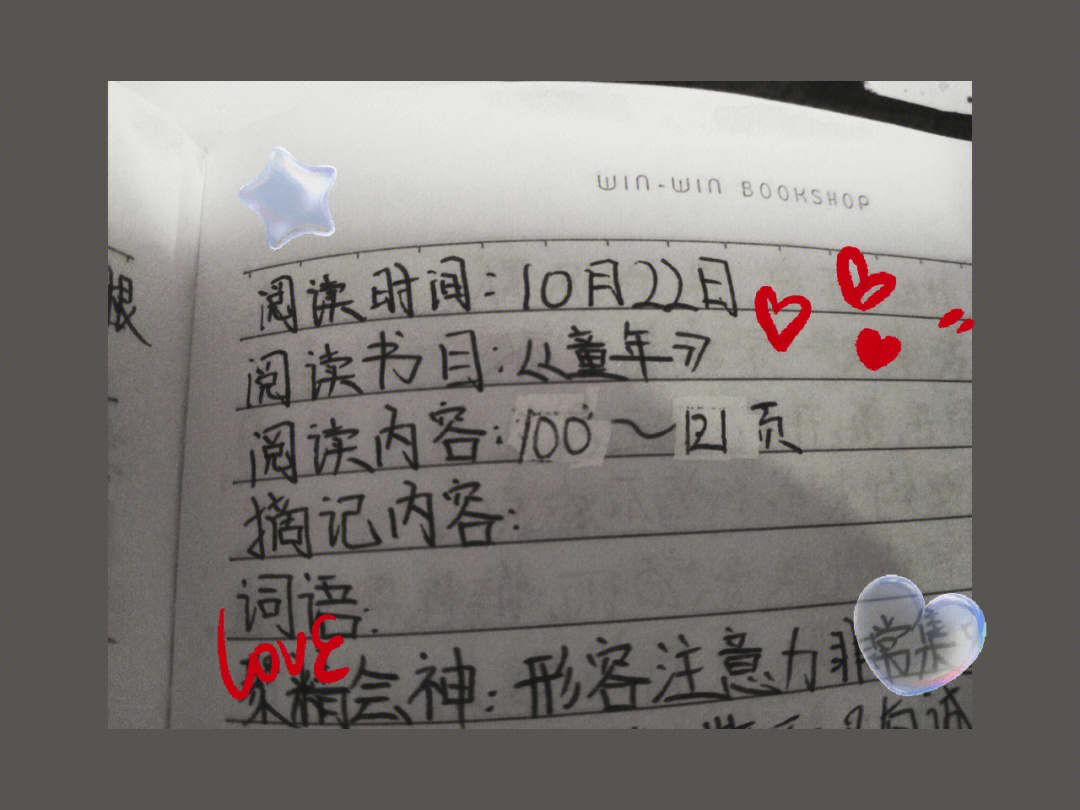 WIN-WIN BOOKSHOP
阅读时间：10月22日
阅读书目：《童年》
阅读内容：100～121页
摘记内容：
词语：
love
聚精会神：形容注意力非常集